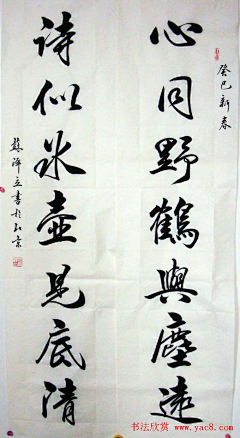 癸巳新春
心同野鶴與塵遠
詩似冰壺見底清
蘇澤立書於北京
书法欣赏 www.yac8.com